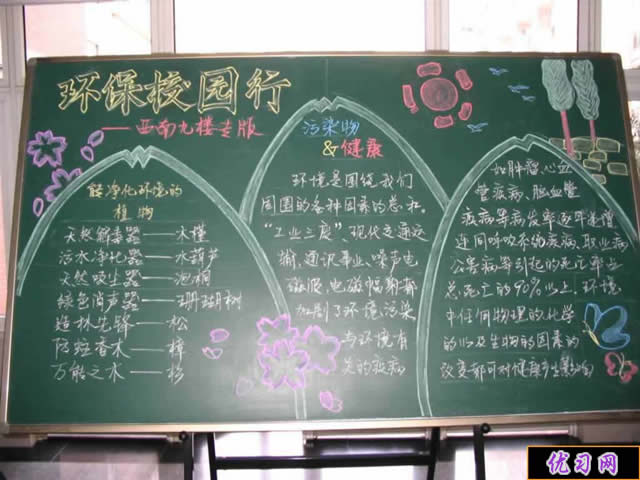 环保校园行
——西南九楼专版
能净化环境的
植物
天然解毒器——木槿
污水净化器——水葫芦
天然吸尘器——泡桐
绿色消声器——珊瑚树
造林先锋——松
防蛀香木——樟
万能之木——杉
污染物
&健康
环境是围绕我们
周围的各种因素的总和。
“工业三废”、现代交通运
输、通讯事业、噪声电
磁波、电磁辐射都
加剧了环境污染
与环境有
关的疾病
如肿瘤、心血
管疾病、脑血管
疾病等病发率逐年递增
连同呼吸系统疾病、职业病
公害病等引起的死亡率业
总死亡的90%以上，环境
中任何物理的化学
的以及生物的因素的
改变都可对健康产生影响
优习网